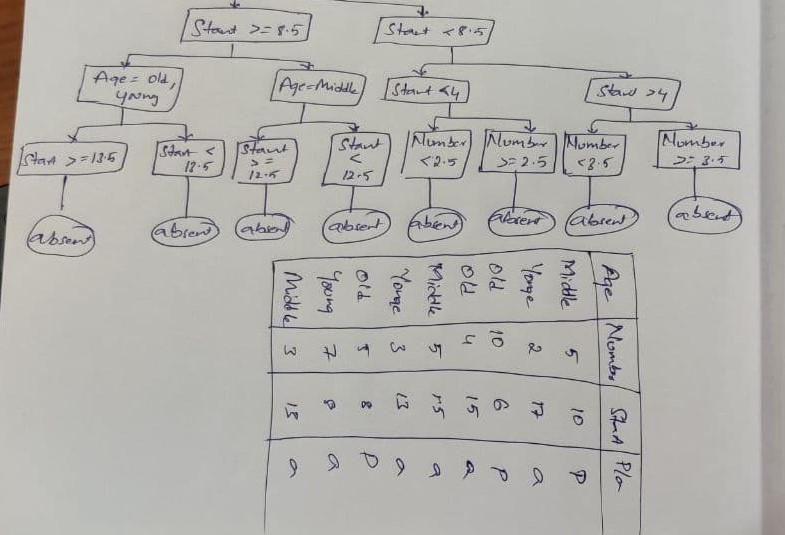 Start >= 8.5
Start < 8.5
Age = old,
young
Age=Middle
Start <4
Start >4
Start >= 13.5
Start <
13.5
Start
>=
12.5
Start
<
12.5
Number
<2.5
Number
>= 2.5
Number
<3.5
Number
>= 3.5
absent
absent
absent
absent
absent
absent
absent
absent
Age Number Start P/a
Middle 5 10 P
Yonge 2 17 a
Old 10 6 P
Old 4 15 a
Middle 5 15 a
Yonge 3 13 a
Old 5 8 P
Young 7 8 a
Middle 3 15 a